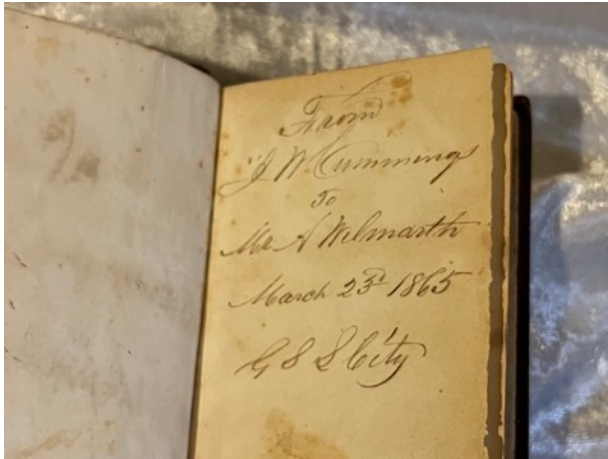 From
J W Cummings
To
Mr A Wilmarth
March 23d 1865
G S L City